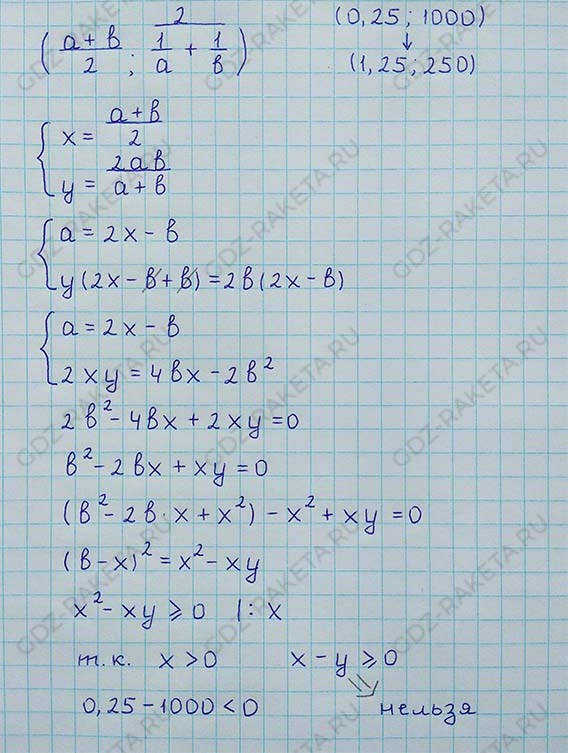 ( (a + в)/2 ; 2/(1/a + 1/в) )
(0,25 ; 1000)
↓
(1,25 ; 250)
{ x = (a + в)/2
y = 2aв/(a + в)
{ a = 2x - в
y(2x - в + в) = 2в(2x - в)
{ a = 2x - в
2xy = 4вx - 2в²
2в² - 4вx + 2xy = 0
в² - 2вx + xy = 0
(в² - 2в·x + x²) - x² + xy = 0
(в - x)² = x² - xy
x² - xy ⩾ 0 |: x
т.к. x > 0 x - y ⩾ 0
0,25 - 1000 < 0 ⇒ нельзя
GDZ-RAKETA.RU